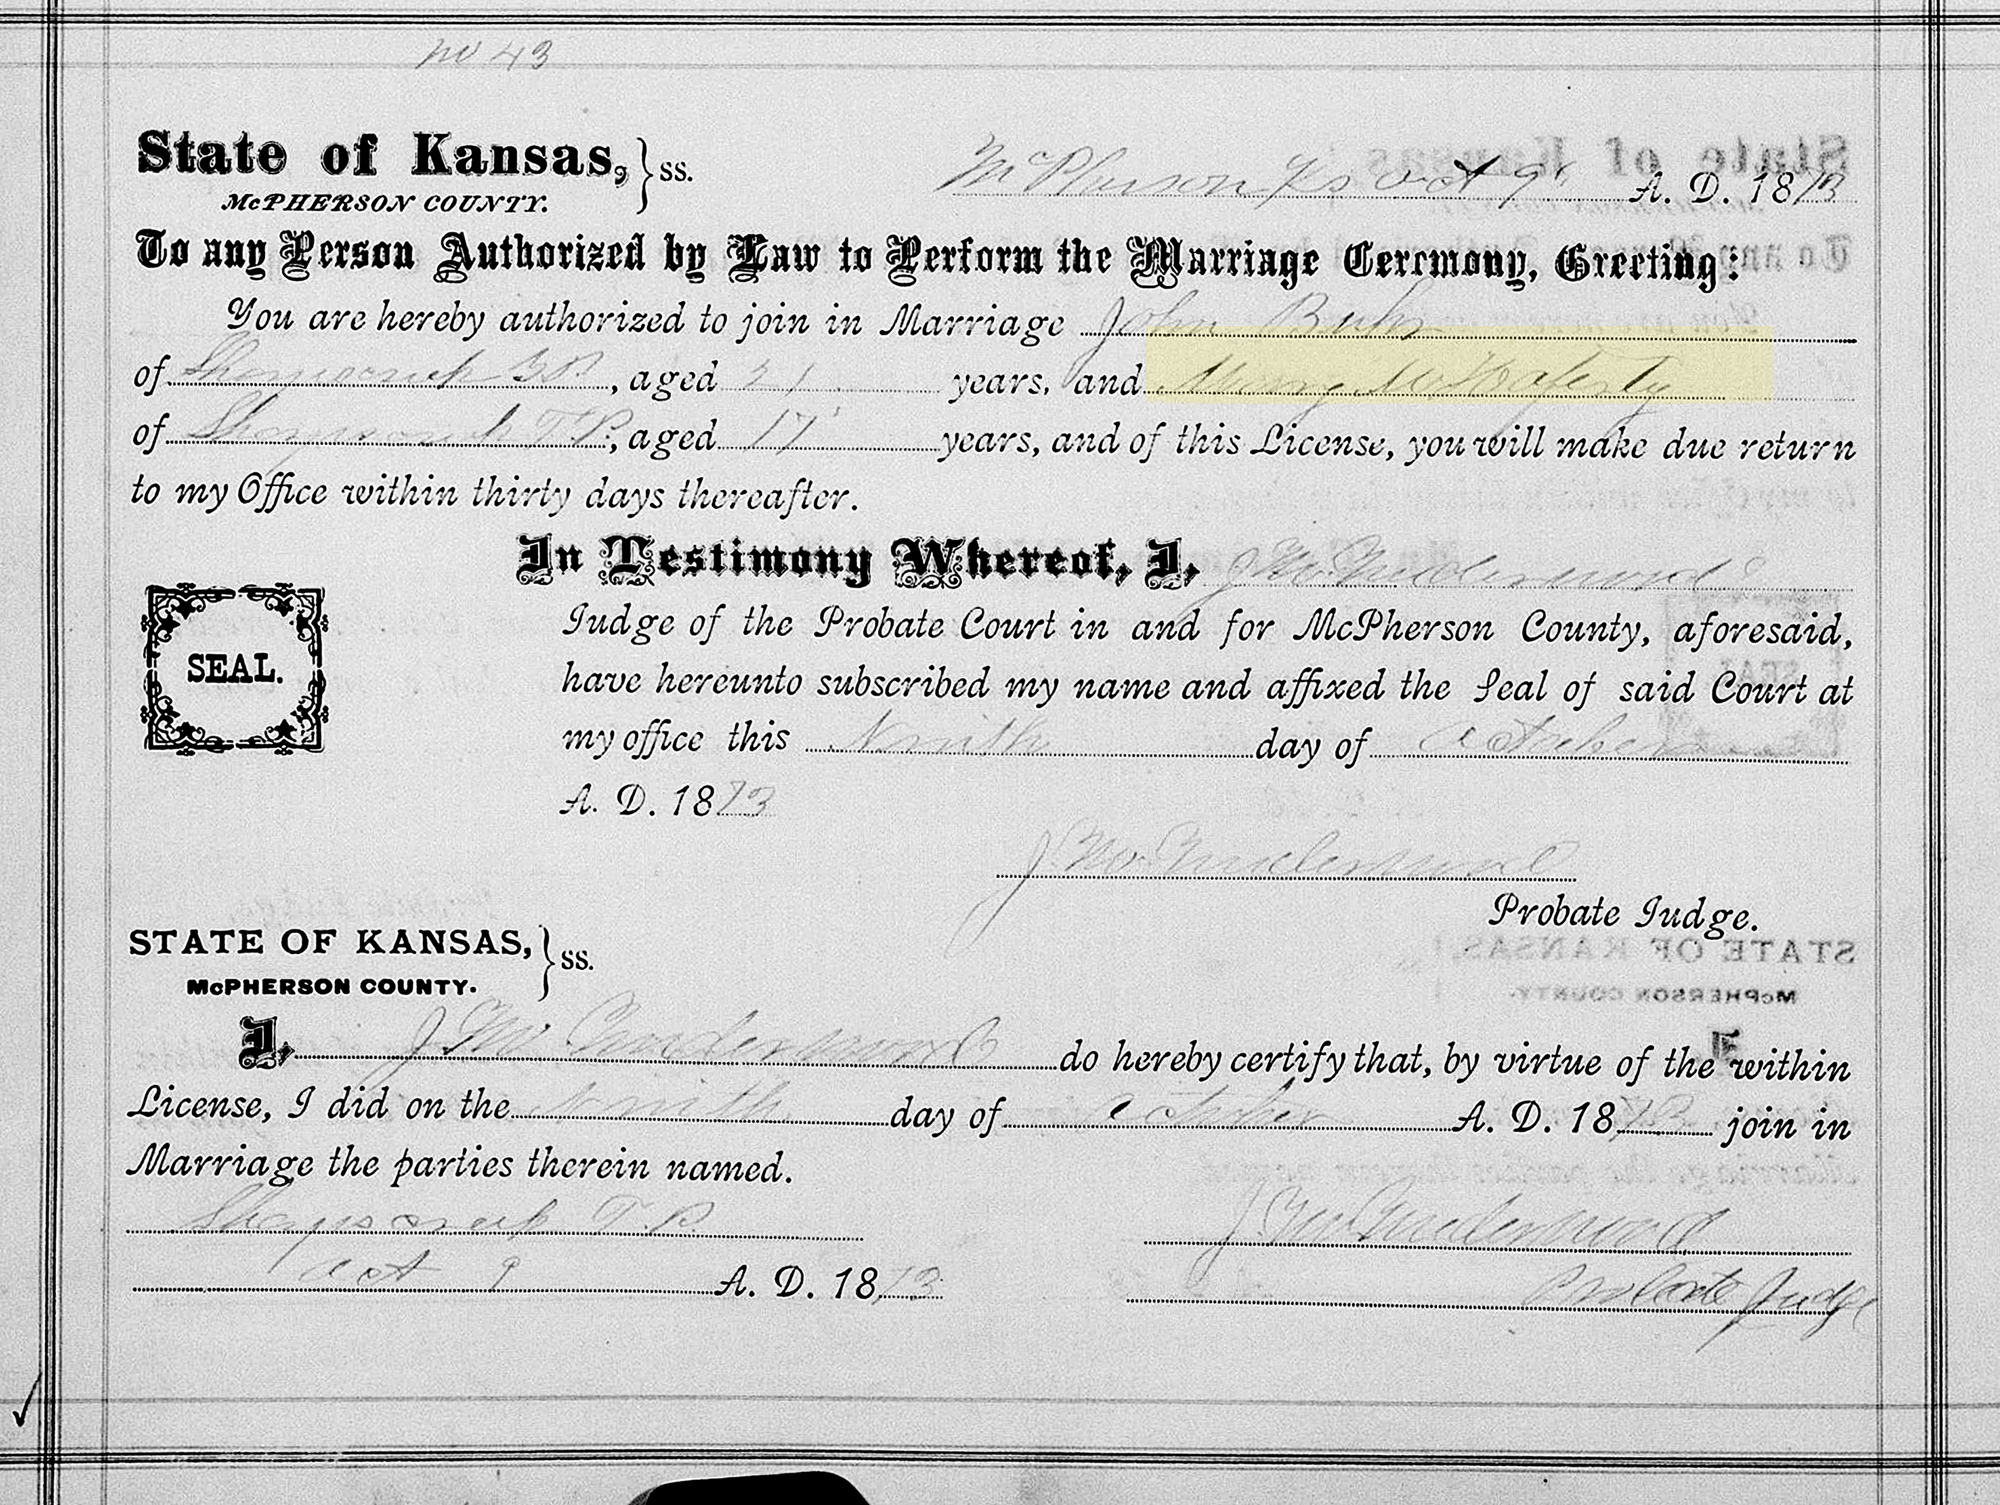 No 43
State of Kansas, } ss.
McPherson Ks Oct 9th A. D. 1873
McPHERSON COUNTY.
To any Person Authorized by Law to Perform the Marriage Ceremony, Greeting:
You are hereby authorized to join in Marriage John Buhr
of , aged 21 years, and Mary
of T.P., aged 17 years, and of this License, you will make due return
to my Office within thirty days thereafter.
In Testimony Whereof, I, J Underwood
Judge of the Probate Court in and for McPherson County, aforesaid,
SEAL.
have hereunto subscribed my name and affixed the Seal of said Court at
my office this Ninth day of October
A. D. 1873
J Underwood
Probate Judge.
STATE OF KANSAS, } ss.
McPHERSON COUNTY.
I, J Underwood do hereby certify that, by virtue of the within
License, I did on the Ninth day of October A. D. 1873 join in
Marriage the parties therein named.
T.P.
J Underwood
Oct 9 A. D. 1873
Probate Judge